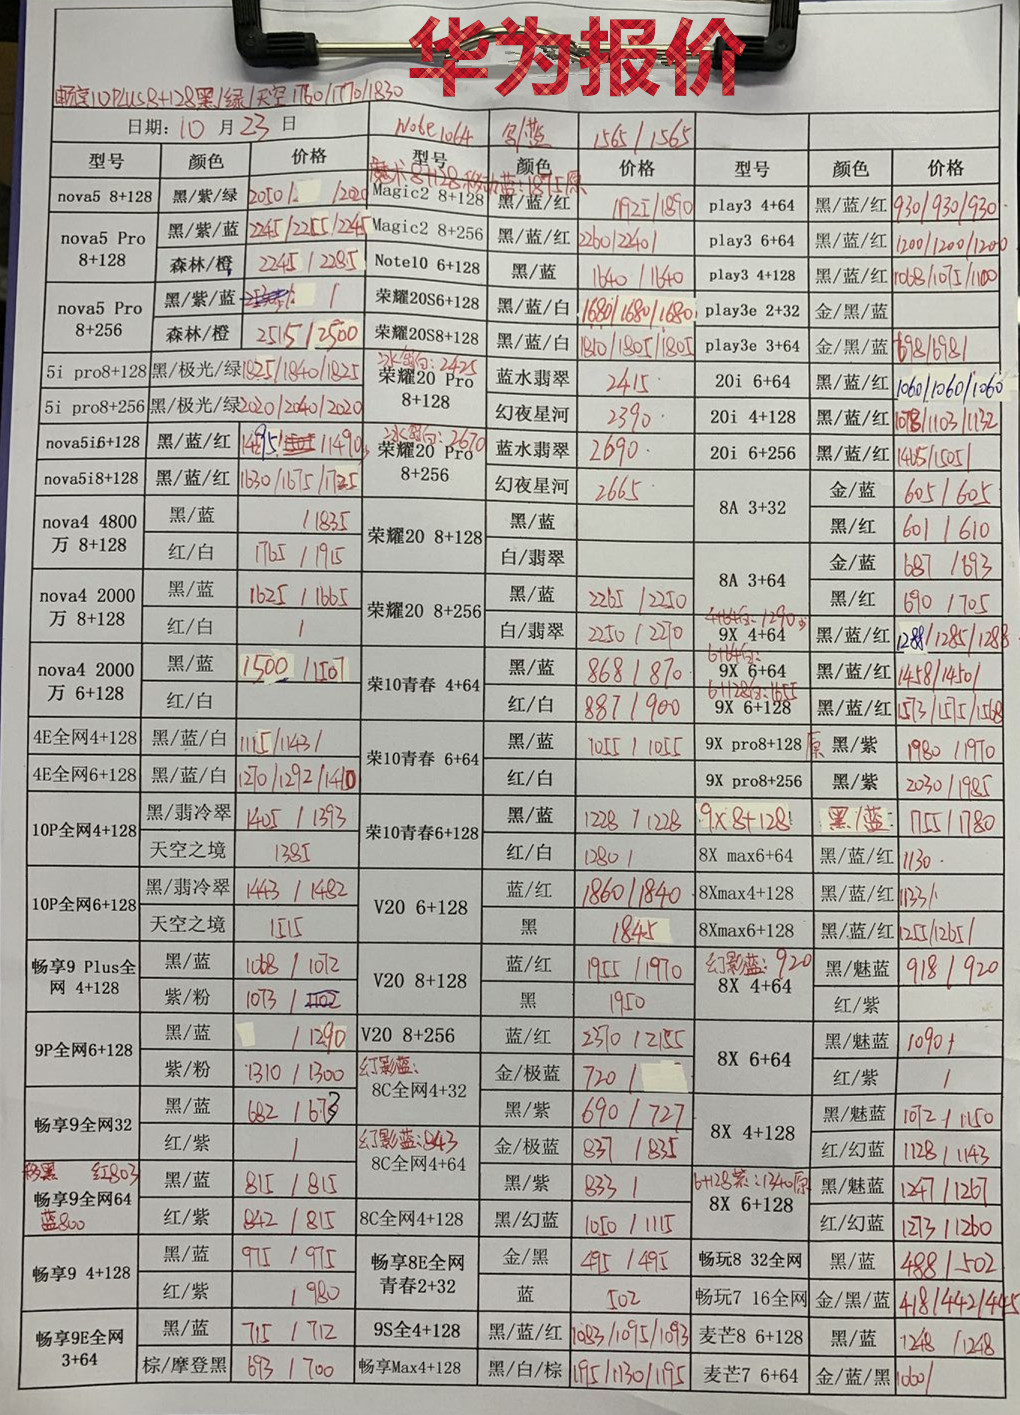 华为报价
畅享10PLUS8+128黑/绿/天空1760/1770/1830
日期:10月23日 Note10 64 黑/蓝 1565/1565
型号 颜色 价格 型号 颜色 价格 型号 颜色 价格
nova5 8+128 黑/紫/绿 2050/ /2020 Magic2 8+128 黑/蓝/红 1925/1890 play3 4+64 黑/蓝/红 930/930/930
nova5 Pro 8+128 黑/紫/蓝 2245/2255/2245 Magic2 8+256 黑/蓝/红 2260/2240/ play3 6+64 黑/蓝/红 1200/1200/1200
森林/橙 2245/2285 Note10 6+128 黑/蓝 1640/1640 play3 4+128 黑/蓝/红 1068/1075/1100
nova5 Pro 8+256 黑/紫/蓝 / 荣耀20S6+128 黑/蓝/白 1680/1680/1680 play3e 2+32 金/黑/蓝
森林/橙 2515/2500 荣耀20S8+128 黑/蓝/白 1810/1805/1805 play3e 3+64 金/黑/蓝 698/698/
5i pro8+128 黑/极光/绿 1825/1840/1825 冰岛白:2425 荣耀20 Pro 8+128 蓝水翡翠 2415 20i 6+64 黑/蓝/红 1060/1060/1060
5i pro8+256 黑/极光/绿 2020/2040/2020 幻夜星河 2390 20i 4+128 黑/蓝/红 1078/1103/1132
nova5i6+128 黑/蓝/红 1495/ /1490 冰岛白:2670 荣耀20 Pro 8+256 蓝水翡翠 2690 20i 6+256 黑/蓝/红 1465/1505/
nova5i8+128 黑/蓝/红 1630/1675/1725 幻夜星河 2665 8A 3+32 金/蓝 605/605
nova4 4800万 8+128 黑/蓝 /1835 荣耀20 8+128 黑/蓝 黑/红 601/610
红/白 1765/1915 白/翡翠 8A 3+64 金/蓝 687/693
nova4 2000万 8+128 黑/蓝 1625/1665 荣耀20 8+256 黑/蓝 2265/2250 黑/红 690/705
红/白 / 白/翡翠 2250/2270 9X 4+64 黑/蓝/红 1288/1285/1288
nova4 2000万 6+128 黑/蓝 1500/1507 荣10青春 4+64 黑/蓝 868/870 9X 6+64 黑/蓝/红 1458/1450/
红/白 红/白 887/900 6+128白:1655 9X 6+128 黑/蓝/红 1573/1575/1568
4E全网4+128 黑/蓝/白 1115/1143/ 荣10青春 6+64 黑/蓝 1055/1055 9X pro8+128原 黑/紫 1980/1970
4E全网6+128 黑/蓝/白 1270/1292/1410 红/白 9X pro8+256 黑/紫 2030/1985
10P全网4+128 黑/翡冷翠 1405/1393 荣10青春6+128 黑/蓝 1228/1228 9X8+128 黑/蓝 1755/1780
天空之境 1385 红/白 1280/ 8X max6+64 黑/蓝/红 1130
10P全网6+128 黑/翡冷翠 1443/1482 V20 6+128 蓝/红 1860/1840 8Xmax4+128 黑/蓝/红 1133/
天空之境 1515 黑 1845 8Xmax6+128 黑/蓝/红 1255/1265/
畅享9 Plus全网 4+128 黑/蓝 1068/1072 V20 8+128 蓝/红 1955/1970 幻影蓝:920 8X 4+64 黑/魅蓝 918/920
紫/粉 1073/ 黑 1950 红/紫
9P全网6+128 黑/蓝 /1290 V20 8+256 蓝/红 2370/2155 8X 6+64 黑/魅蓝 1090/
紫/粉 1310/1300 幻影蓝: 8C全网4+32 金/极蓝 720/ 红/紫 /
畅享9全网32 黑/蓝 682/673 黑/紫 690/727 8X 4+128 黑/魅蓝 1072/1150
红/紫 / 幻影蓝:843 8C全网4+64 金/极蓝 837/835 红/幻蓝 1128/1143
移黑 红803 畅享9全网64 蓝800 黑/蓝 815/815 黑/紫 833/ 6+128紫:1340原 8X 6+128 黑/魅蓝 1247/1267
红/紫 842/815 8C全网4+128 黑/幻蓝 1050/1115 红/幻蓝 1273/1260
畅享9 4+128 黑/蓝 975/975 畅享8E全网青春2+32 金/黑 495/495 畅玩8 32全网 黑/蓝 488/502
红/紫 /980 蓝 502 畅玩7 16全网 金/黑/蓝 418/442/445
畅享9E全网 3+64 黑/蓝 715/712 9S全4+128 黑/蓝/红 1083/1095/1093 麦芒8 6+128 黑/蓝 1248/1248
棕/摩登黑 693/700 畅享Max4+128 黑/白/棕 1195/1130/1195 麦芒7 6+64 金/蓝/黑 1060/